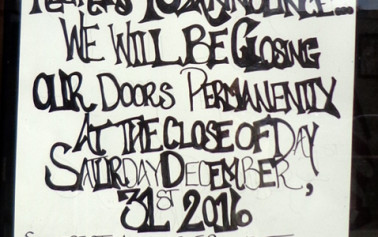 TO ANNOUNCE...
WE WILL BE CLOSING
OUR DOORS PERMANENTLY
AT THE CLOSE OF DAY
SATURDAY DECEMBER,
31ST 2016